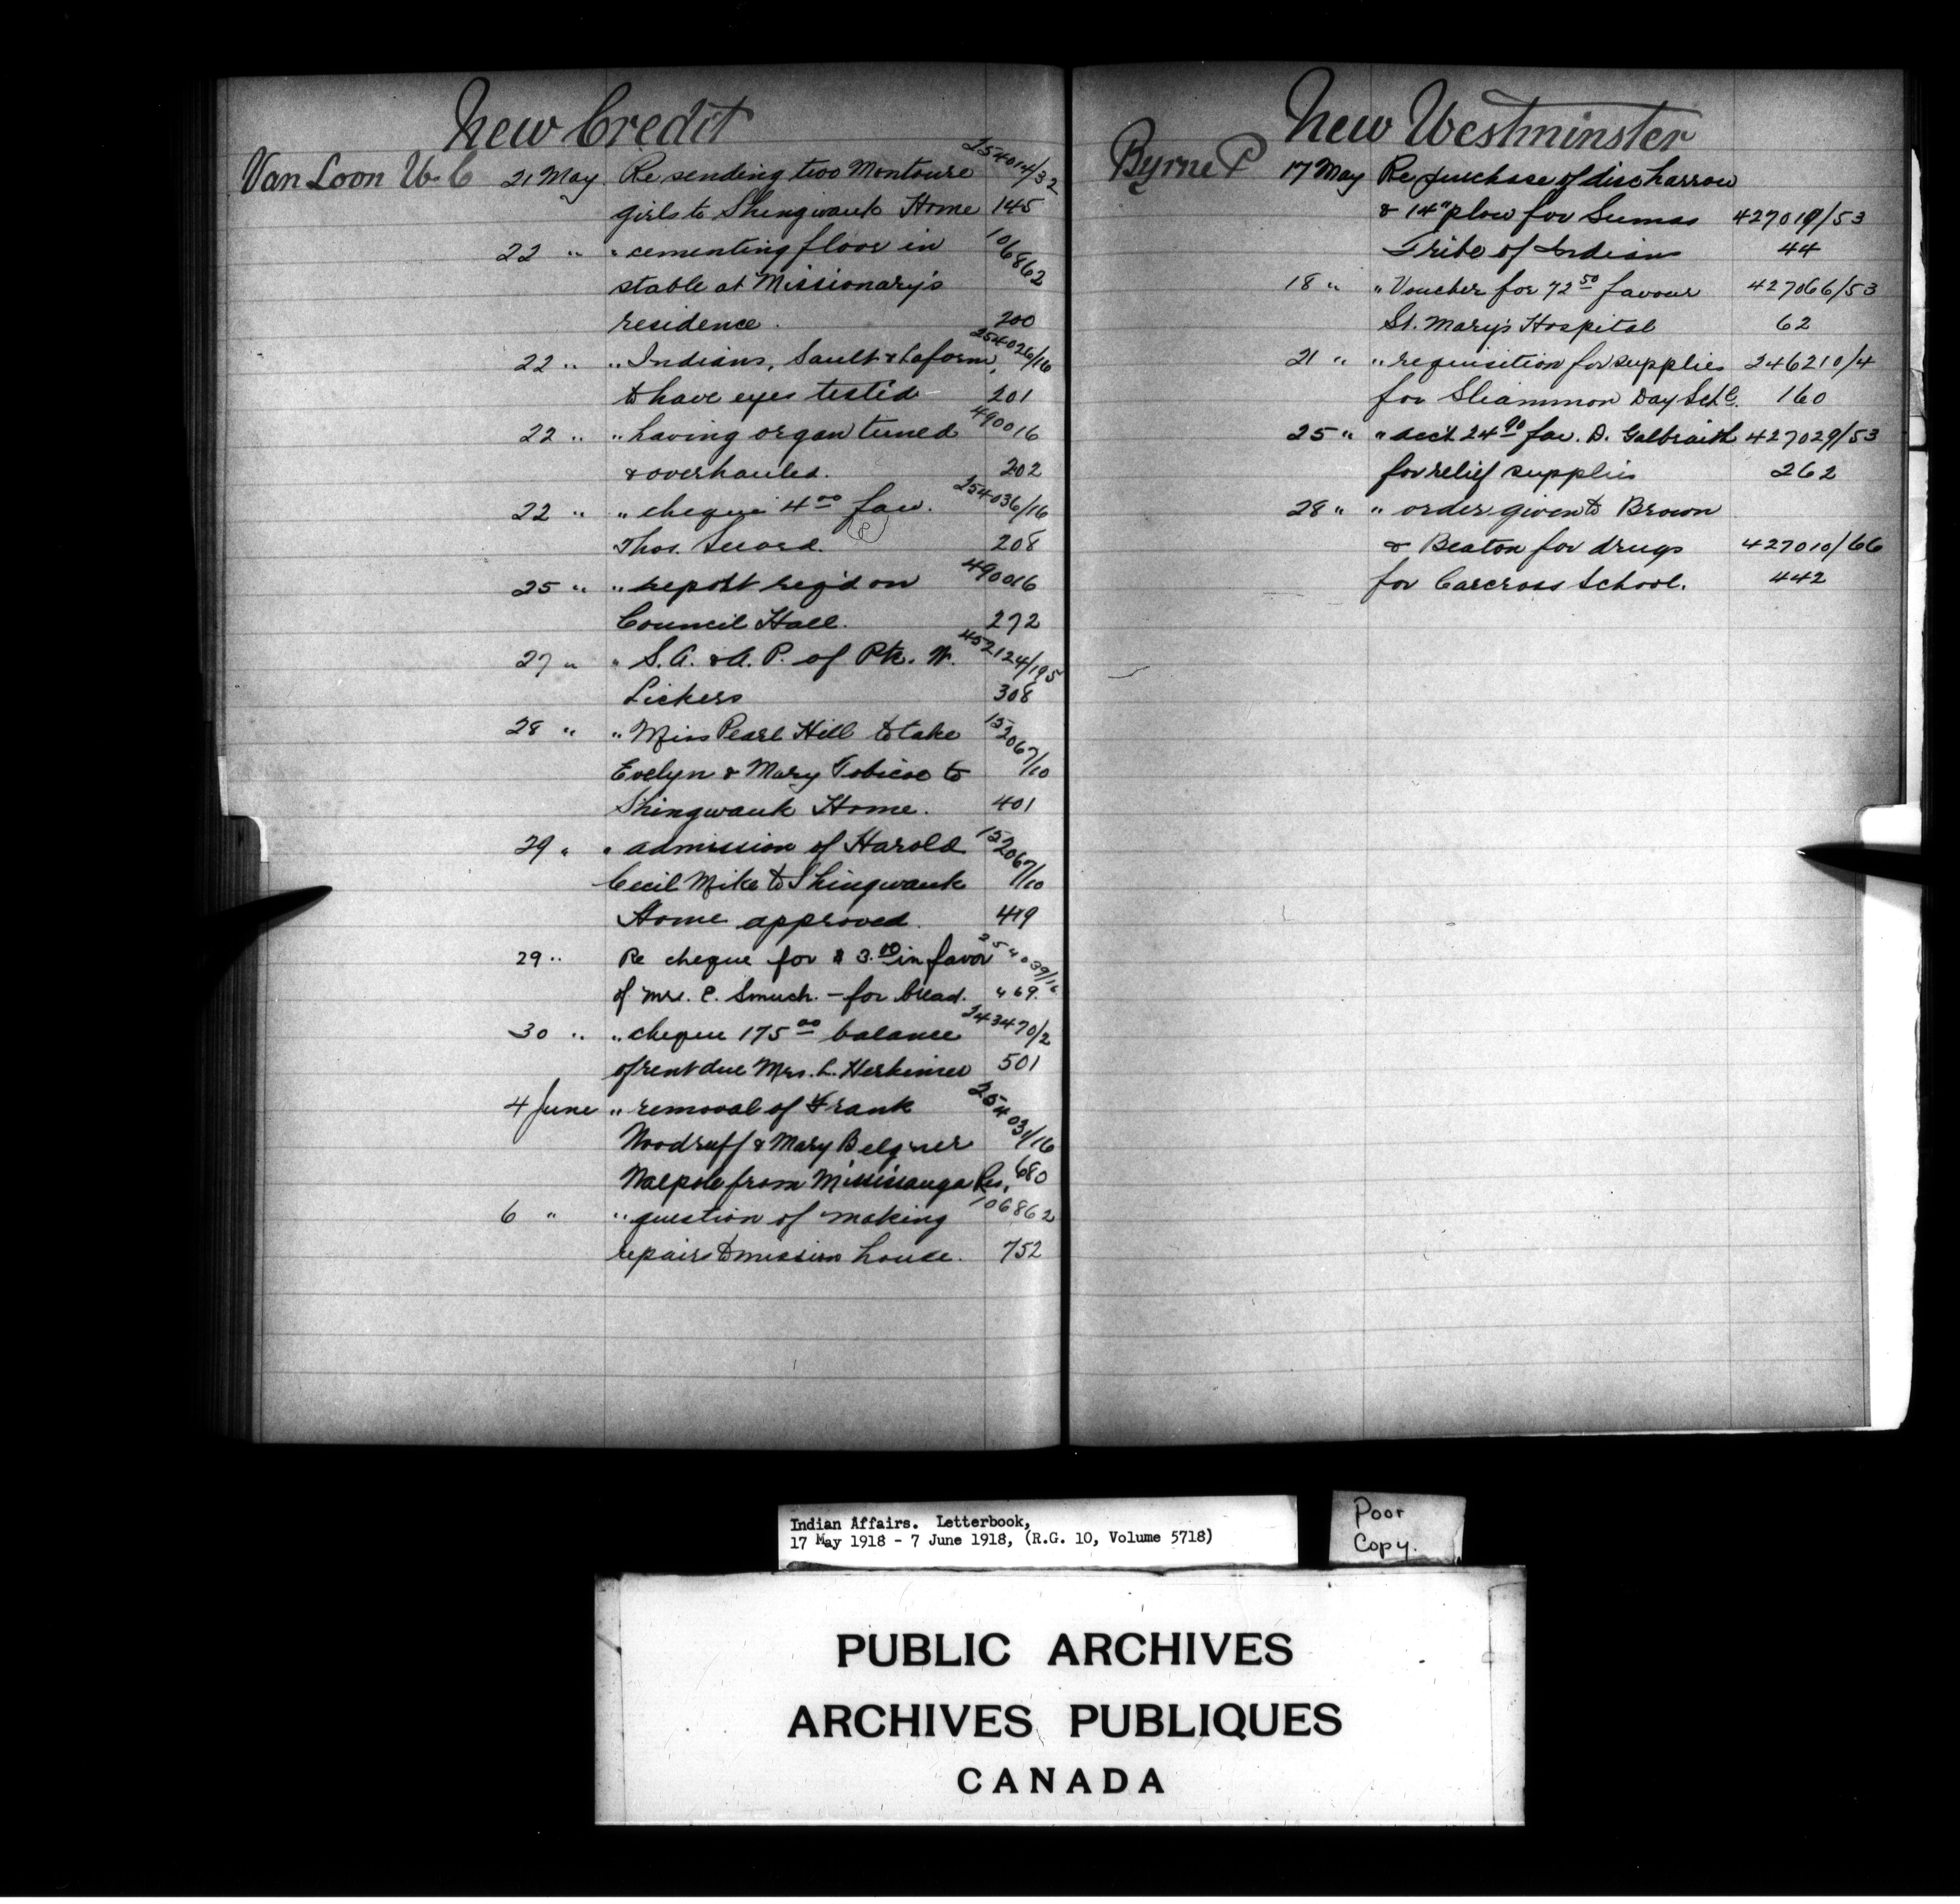 New Credit
Van Loon W. C 21 May Re sending two Montoure 254014/32
girls to Shingwauk Home 145
22 " " cementing floor in 106862
stable at Missionary's
residence. 200
22 " " Indians, Sault & Laform, 254026/16
to have eyes tested 201
22 " " having organ tuned 490016
& overhauled. 202
22 " " cheque 4 00 fav. 254036/16
Thos. Secord. 208
25 " " report reg'd on 490016
Council Hall. 272
27 " " S. A. & A. P. of Pte. W. 452124/195
Lickers 308
28 " " Miss Pearl Hill to take 152067/10
Evelyn & Mary Tobicoe to
Shingwauk Home. 401
29 " " admission of Harold 152067/10
Cecil Mike to Shingwauk
Home approved. 419
29 " Re cheque for $ 3.00 in favor 254039/16
of Mrs. C. Smuch. - for bread. 469.
30 " " cheque 175 00 balance 243470/2
of rent due Mrs. L. Herkimer 501
4 June " removal of Frank 254031/16
Woodruff & Mary
Walpole from Mississauga Res. 680
6 " " question of making 106862
repairs to mission house. 752
New Westminster
Byrne P 17 May Re purchase of disc harrow
& 14" plow for Sumas 427019/53
Tribe of Indians 44
18 " " Voucher for 72 50 favour 427066/53
St. Mary's Hospital 62
21 " " requisition for supplies 246210/4
for Sliammon Day Schl. 160
25 " " acct 24 90 fav. D. Galbraith 427029/53
for relief supplies 262
28 " " order given to Brown
& Beaton for drugs 427010/66
for Carcross School. 442
Indian Affairs. Letterbook,
17 May 1918 - 7 June 1918, (R.G. 10, Volume 5718)
Poor
Copy.
PUBLIC ARCHIVES
ARCHIVES PUBLIQUES
CANADA